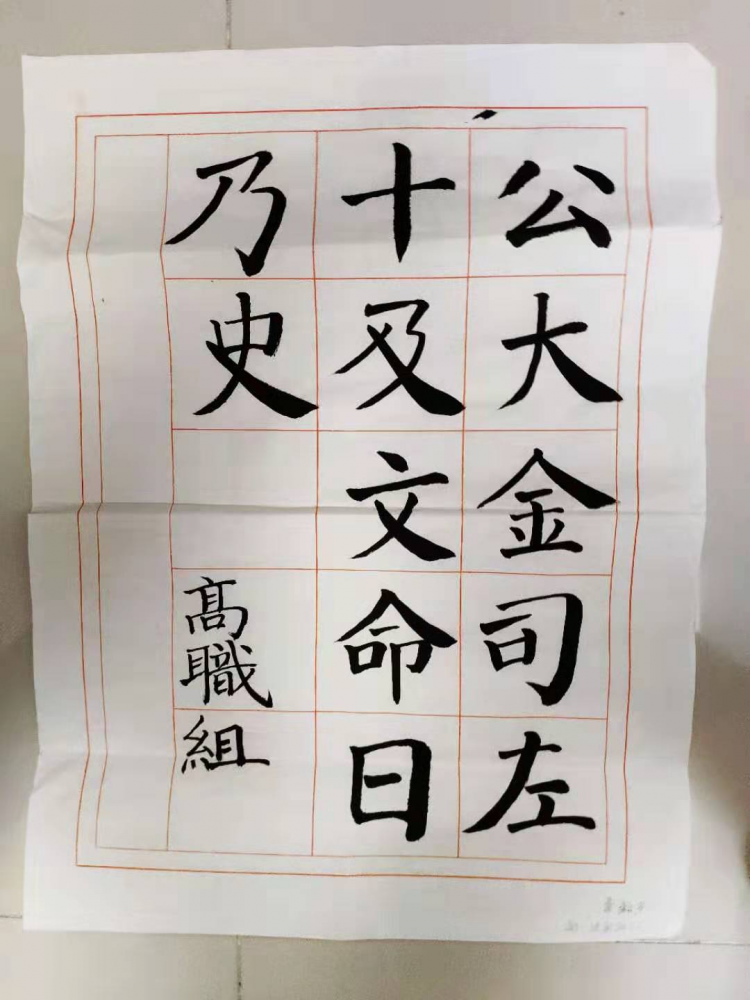 公大金司左
十及文命日
乃史
高職組